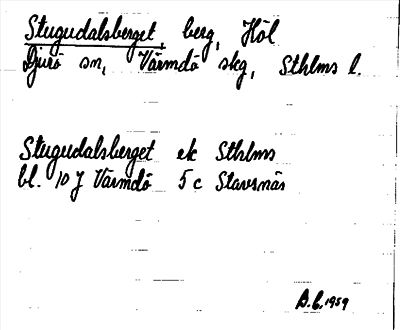 Stugudalsberget, berg, Höl
Djurö sn, Värmdö skg, Sthlms l.
Stugudalsberget ek Sthlms
bl. 10 J Värmdö 5 c Stavsnäs
B.C. 1959